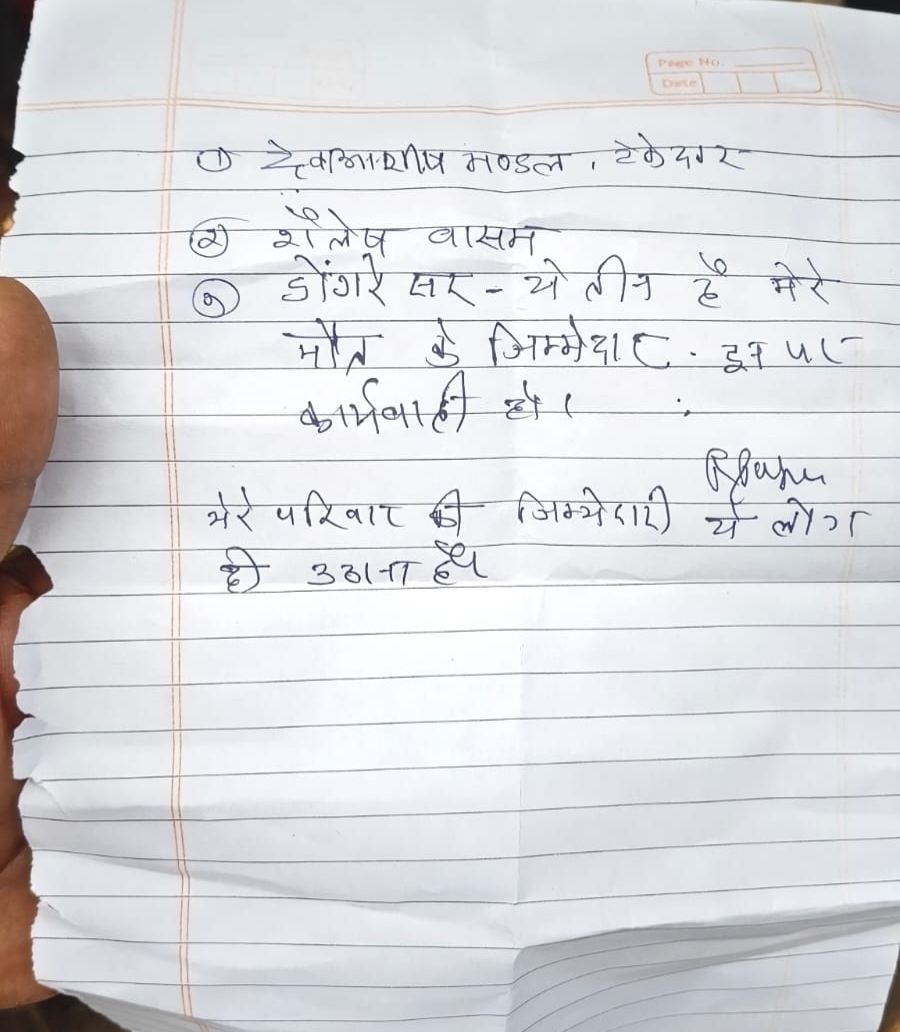 Page No.
Date
① देवआशीष मण्डल, ठेकेदार
② शैलेष वासम
③ डोंगरे सर - ये तीन है मेरे
मौत के जिम्मेदार. इन पर
कार्यवाही हो।
मेरे परिवार की जिम्मेदारी ये लोग
ही उठाना है।